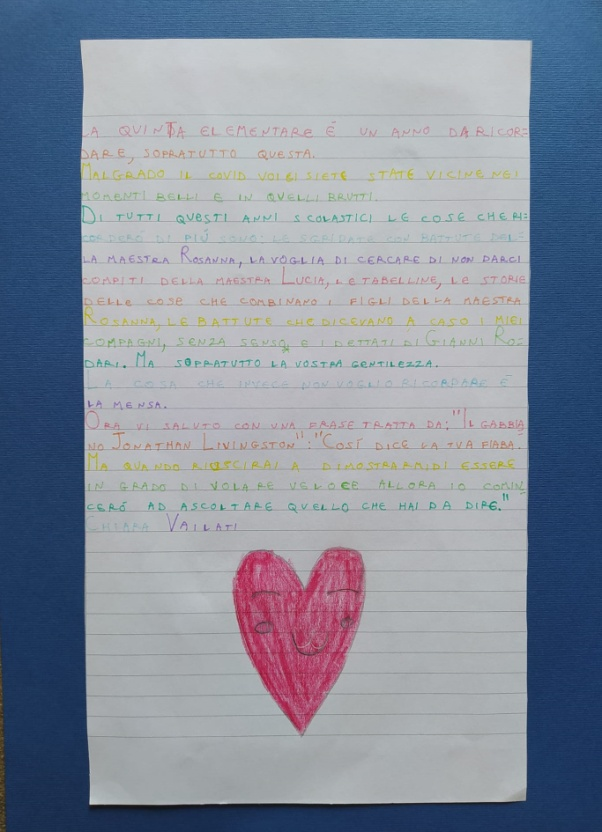 LA QUINTA ELEMENTARE É UN ANNO DA RICOR=
DARE, SOPRATUTTO QUESTA.
MALGRADO IL COVID VOI CI SIETE STATE VICINE NEI
MOMENTI BELLI E IN QUELLI BRUTTI.
DI TUTTI QUESTI ANNI SCOLASTICI LE COSE CHE RI=
CORDERÓ DI PIÚ SONO: LE SGRIDATE CON BATTUTE DEL=
LA MAESTRA ROSANNA, LA VOGLIA DI CERCARE DI NON DARCI
COMPITI DELLA MAESTRA LUCIA, LE TABELLINE, LE STORIE
DELLE COSE CHE COMBINANO I FIGLI DELLA MAESTRA
ROSANNA, LE BATTUTE CHE DICEVANO A CASO I MIEI
COMPAGNI, SENZA SENSO, E I DETTATI DI GIANNI RO=
DARI. MA SOPRATUTTO LA VOSTRA GENTILEZZA.
LA COSA CHE INVECE NON VOGLIO RICORDARE É
LA MENSA.
ORA VI SALUTO CON UNA FRASE TRATTA DA: "IL GABBIA
NO JONATHAN LIVINGSTON": "COSÍ DICE LA TUA FIABA.
MA QUANDO RIUSCIRAI A DIMOSTRARMI DI ESSERE
IN GRADO DI VOLARE VELOCE ALLORA IO COMIN
CERÓ AD ASCOLTARE QUELLO CHE HAI DA DIRE."
CHIARA VAILATI